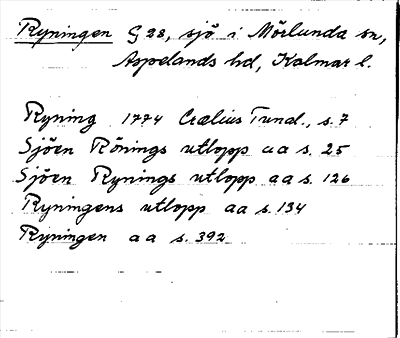 Ryningen G 28, sjö i Mörlunda sn,
Aspelands hd, Kalmar l.
Ryning 1774 Crælius Tund., s. 7
Sjöen Rönings utlopp aa s. 25
Sjöen Rynings utlopp aa s. 126
Ryningens utlopp aa s. 134
Ryningen aa s. 392